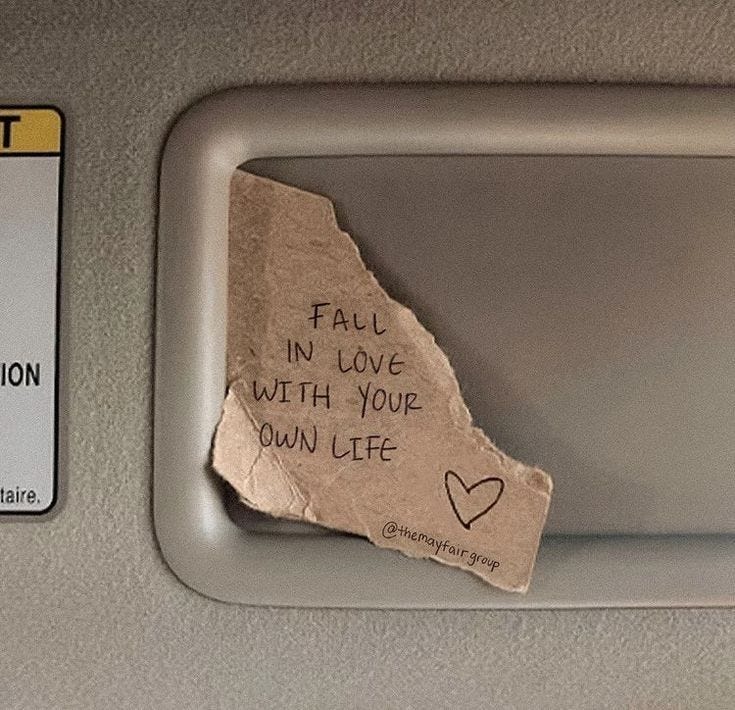 T
ION
taire.
FALL
IN LOVE
WITH YOUR
OWN LIFE
@themayfairgroup